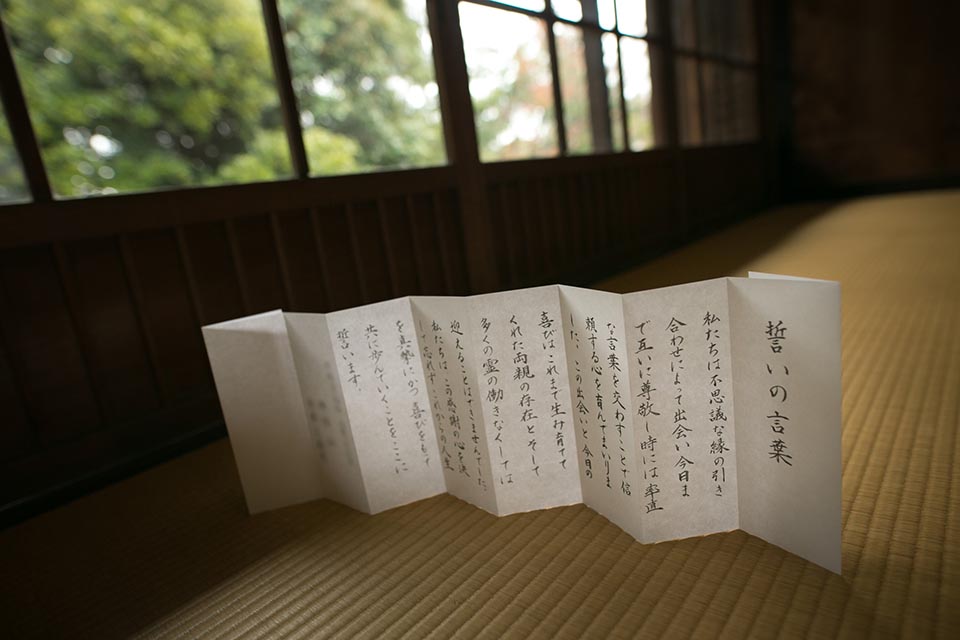 誓いの言葉
私たちは不思議な縁の引き
合わせによって出会い今日ま
で互いに尊敬し時には率直
な言葉を交わすことで信
頼する心を育んでまいりま
した。この出会いと今日の
喜びは これまで生み育てて
くれた両親の存在とそして
多くの霊の働きなくしては
迎えることはできませんでした
私たちは この感謝の心を決
して忘れず これからの人生
を真摯に かつ 喜びをもって
共に歩んでいくことをここに
誓います。